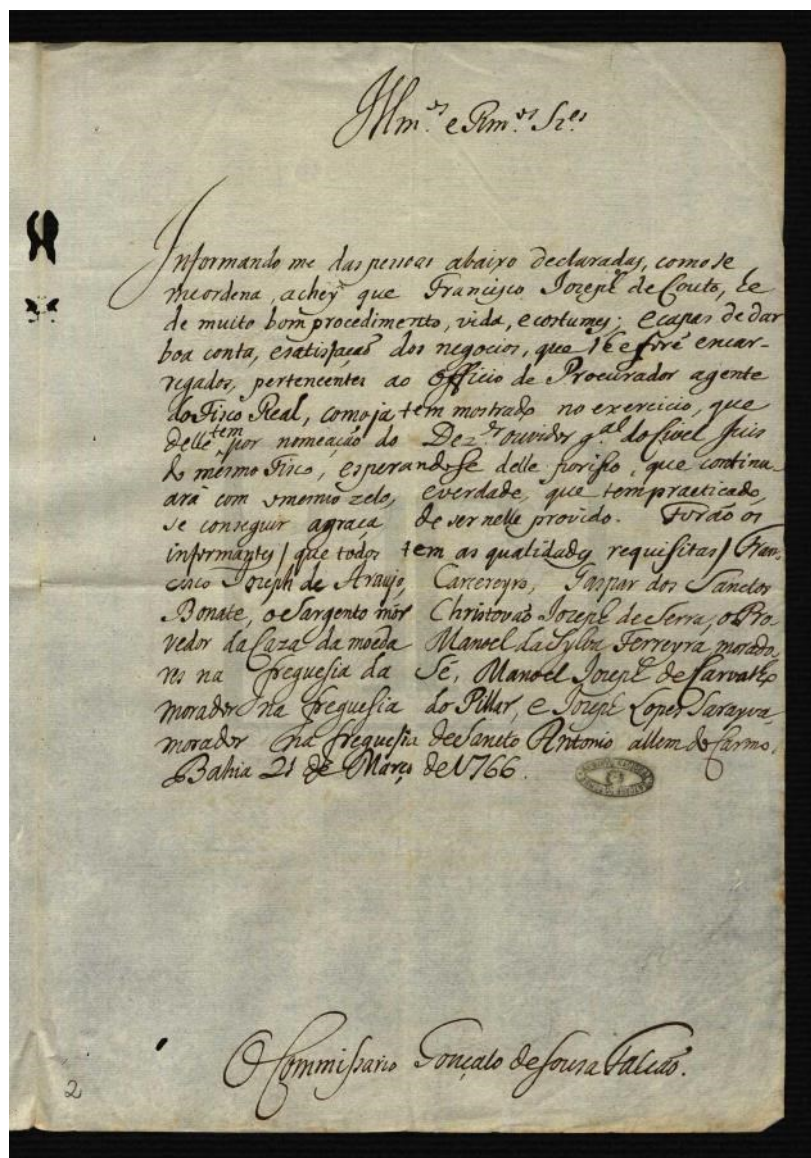 Illm.os e Rm.os Sr.es
Informando me das pessoas abaixo declaradas, como se
me ordena, achey que Francisco Joseph de Couto, he
de muito bom procedimento, vida, e costumes; e capas de dar
boa conta, e satisfaçaõ dos negocios, que lhe forẽ encar-
regados, pertencentes ao Officio de Procurador agente
do Fisco Real, como ja tem mostrado no exercicio, que
delle tem por nomeação do Dez.or ouvidor g.al do Civel Juis
do mesmo Fisco, esperandose delle por isso, que continu
ará com o mesmo zelo, e verdade, que tem practicado,
se conseguir a graça de ser nelle provido. Forão os
informantes / que todos tem as qualidades requisitas / Fran-
cisco Joseph de Araujo, Carcereyro, Gaspar dos Sanctos
Bonate, o Sargento mór Christovaõ Joseph de Serra, o Pro
vedor da Caza da moeda Manoel da Sylva Ferreyra, morado
res na freguesia da Sé, Manoel Joseph de Carvalho
morador na freguesia do Pillar, e Joseph Lopes Sarayva
morador na freguesia de Sancto Antonio allem do Carmo.
Bahia 21 de Março de 1766.
O Commissario Gonçalo de Sousa Falcaõ.
2